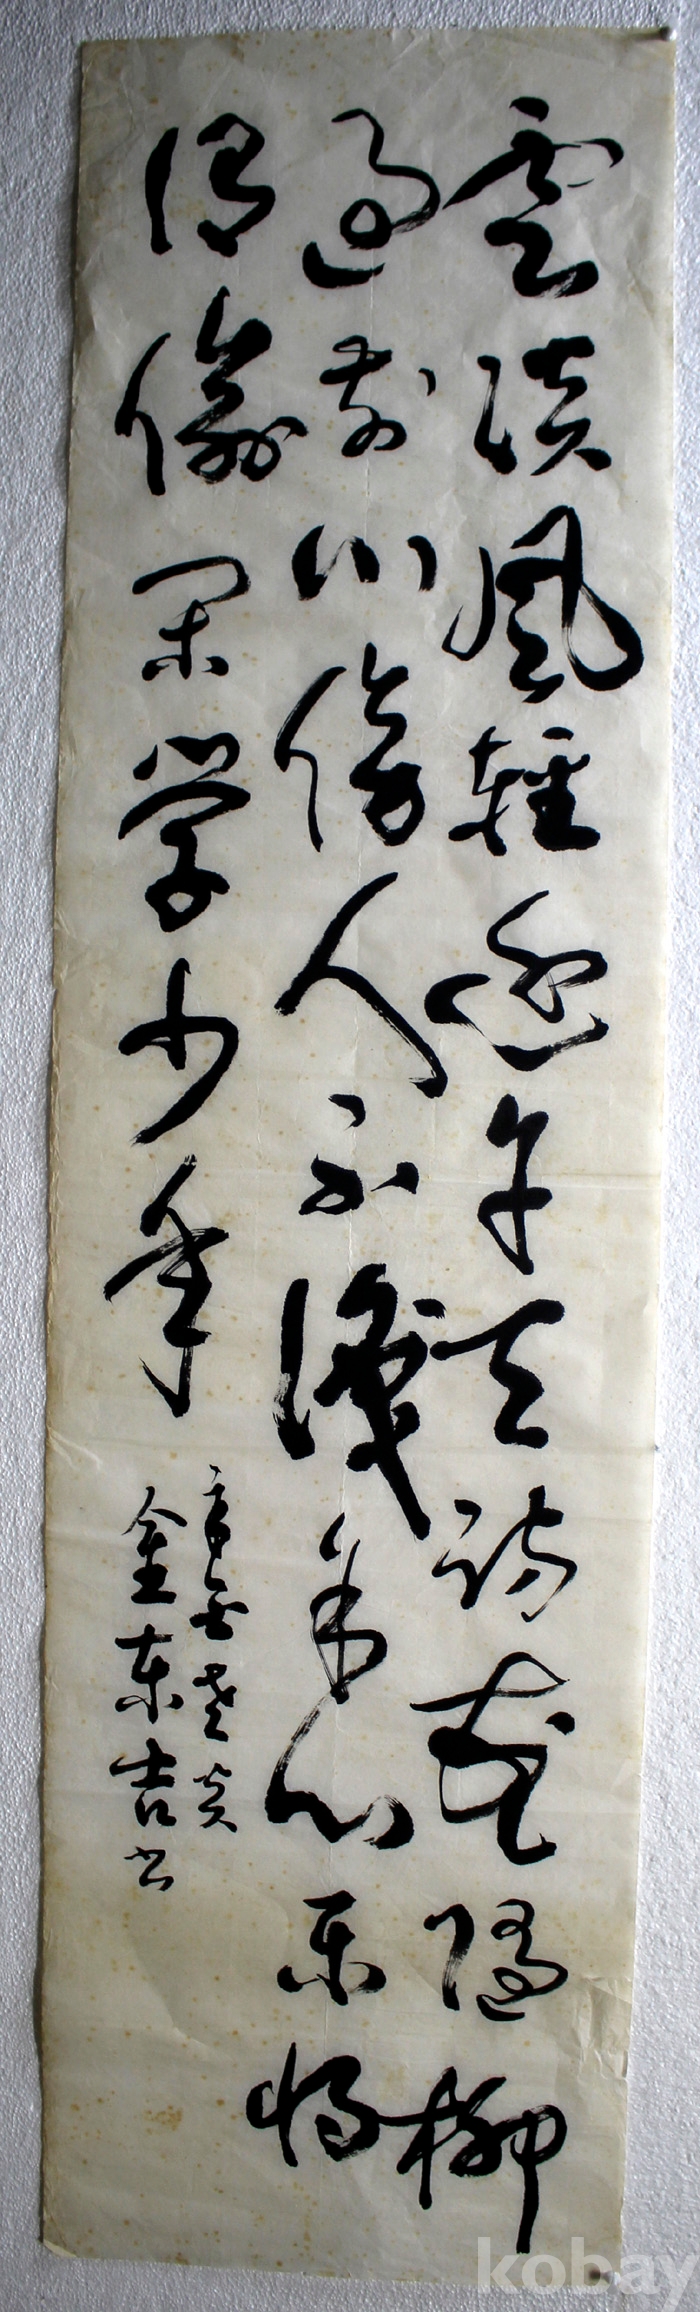 雲淡風輕近午天訪花隨柳
過前川傍人不識余心樂將
謂偷閑學少年
金東吉書